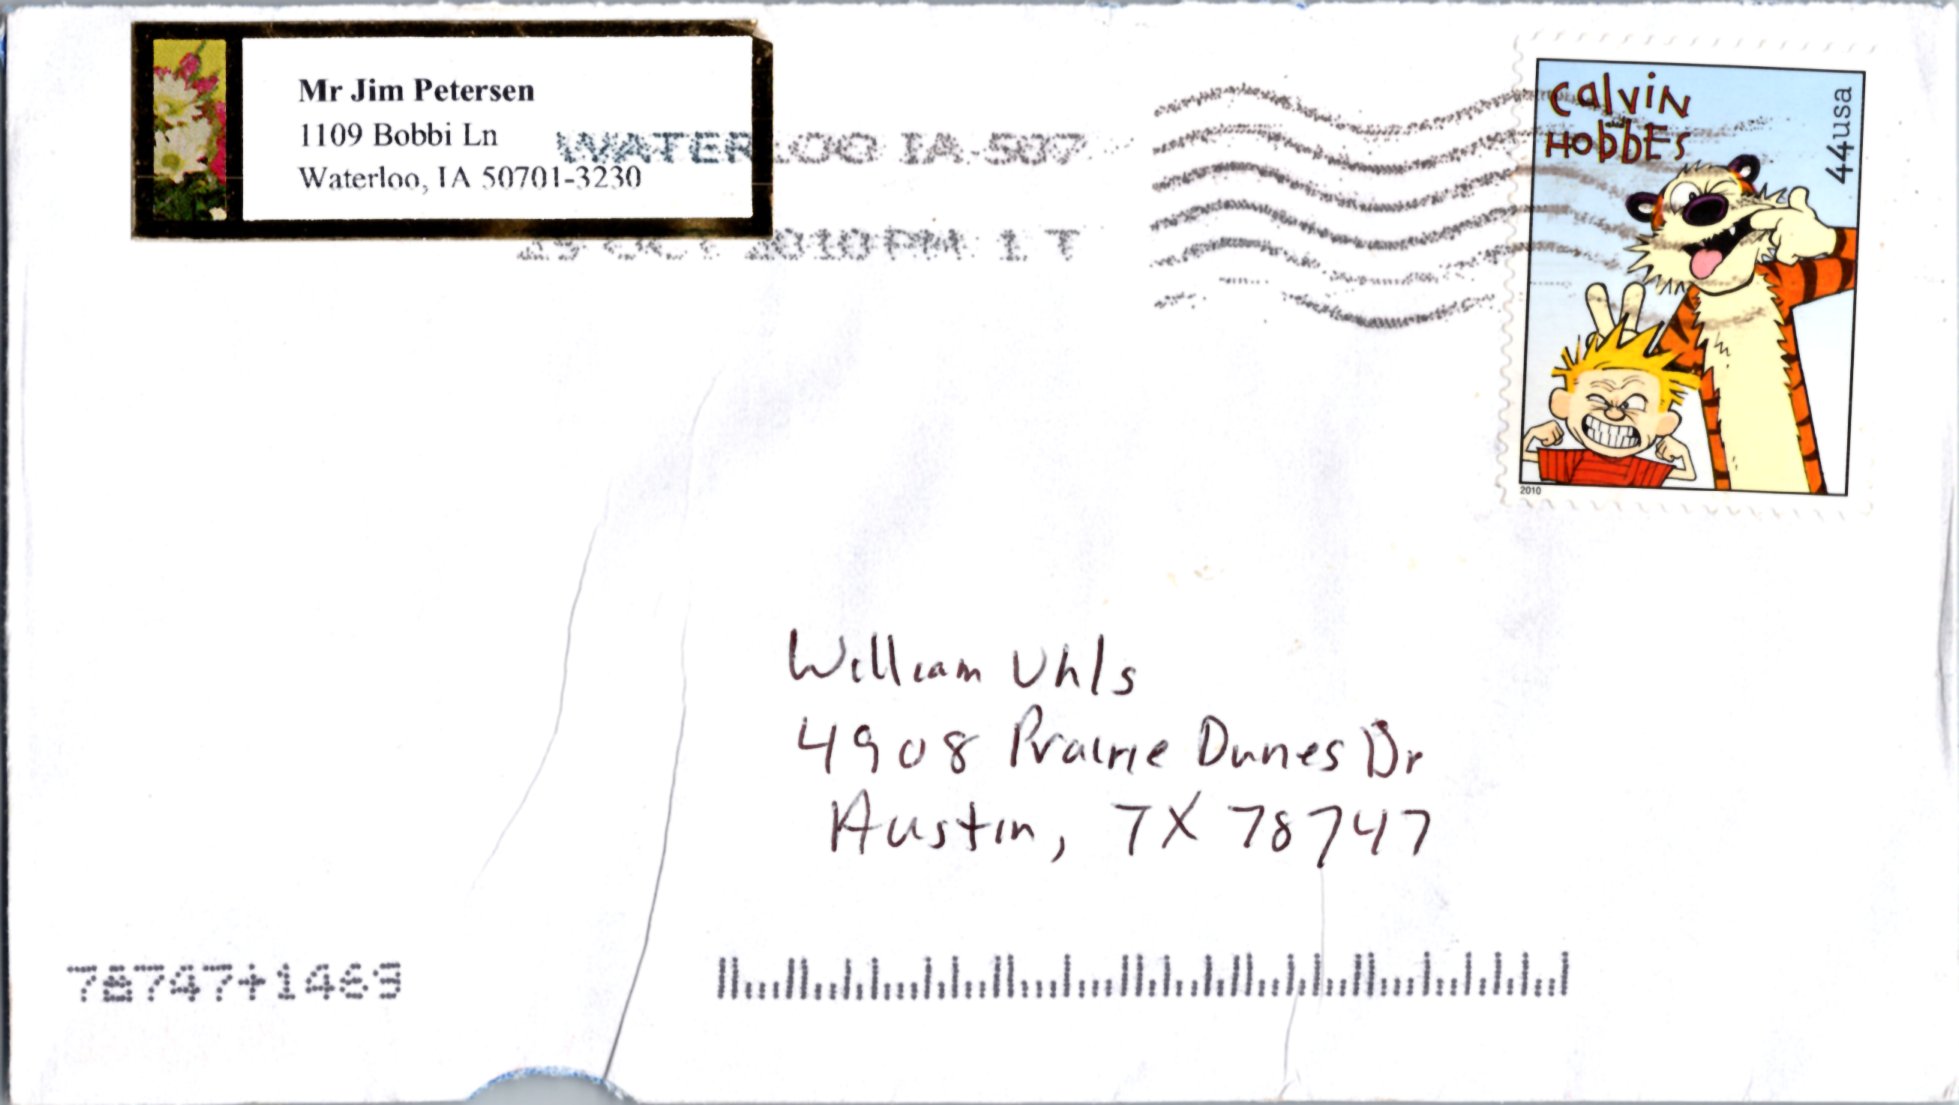 Mr Jim Petersen
1109 Bobbi Ln
Waterloo, IA 50701-3230
WATERLOO IA 507
29 OCT 2010 PM 1 T
CALVIN
HOBBES
44usa
2010
William Uhls
4908 Prairie Dunes Dr
Austin, TX 78747
78747+1469